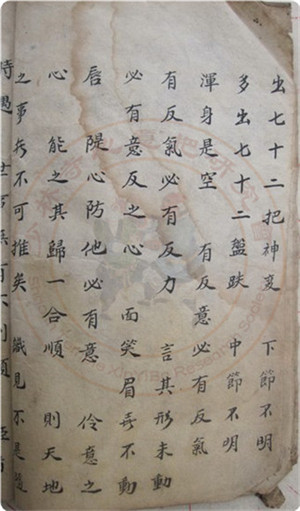 出七十二把神変 下節不明
多出七十二盤跌 中節不明
渾身是空 有反意必有反氣
有反氣必有反力 言其形未動
必有意反之心 面笑眉喜不動
唇 隄心防他必有意 伶意之
心能之其歸一合順 則天地
之事無不可推矣 識見不是
時遇 世